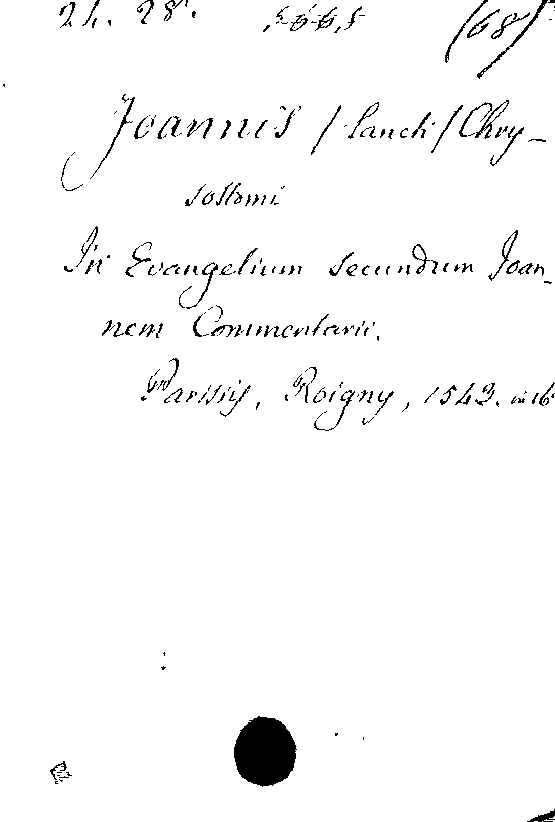 21. 28. (68)
Joannis /Sancti/ Chry-
sostomi
In Evangelium secundum Joan-
nem Commentarii.
Parisiis, Roigny, 1543. in 16